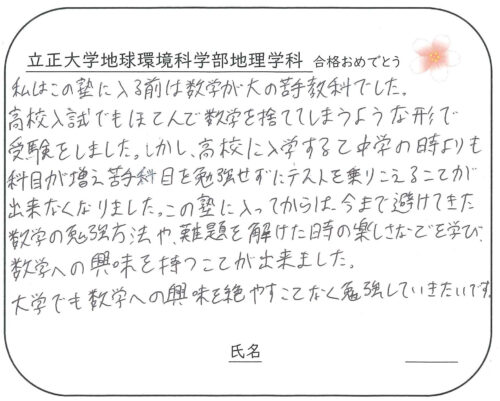 立正大学地球環境科学部地理学科 合格おめでとう
私はこの塾に入る前は数学が大の苦手教科でした。
高校入試でもほとんど数学を捨ててしまうような形で
受験をしました。しかし、高校に入学すると中学の時よりも
科目が増え苦手科目を勉強せずにテストを乗りこえることが
出来なくなりました。この塾に入ってからは、今まで避けてきた
数学の勉強方法や、難題を解けた時の楽しさなどを学び、
数学への興味を持つことが出来ました。
大学でも数学への興味を絶やすことなく勉強していきたいです。
氏名